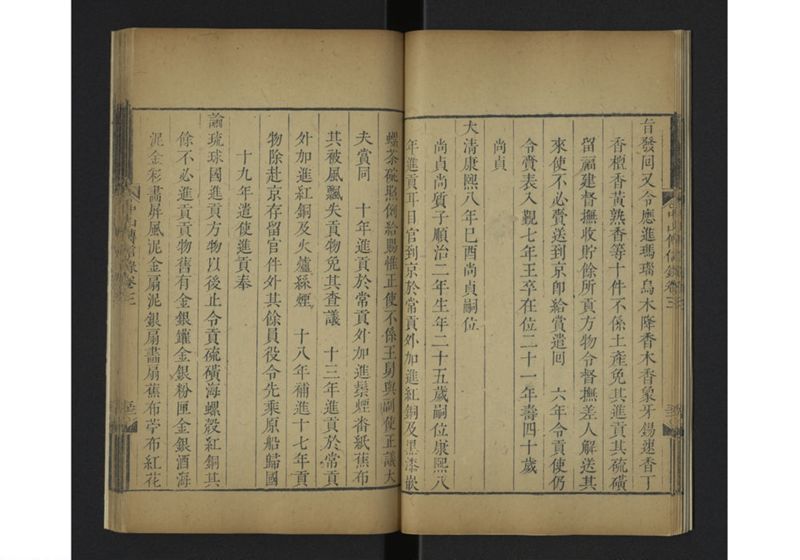 旨發回又令應進瑪瑙烏木降香木香象牙錫速香丁
香檀香黃熟香等十件不係土產免其進貢其硫磺
留福建督撫收貯餘所貢方物令督撫差人解送其
來使不必齎送到京卽給賞遣回　六年令貢使仍
令齎表入覲七年王卒在位二十一年壽四十歲
尚貞
大清康熙八年己酉尚貞嗣位
尚貞尚質子順治二年生年二十五歲嗣位康熙八
年進貢耳目官到京於常貢外加進紅銅及黑漆嵌
螺茶碗照例給賜惟正使不係王舅與副使正議大
夫賞同　十年進貢於常貢外加進鬃煙番紙蕉布
其被風飄失貢物免其查議　十三年進貢於常貢
外加進紅銅及火爐絲煙　十八年補進十七年貢
物除赴京存留官件外其餘員役令先乘原船歸國
十九年遣使進貢奉
諭琉球國進貢方物以後止令貢硫磺海螺殼紅銅其
餘不必進貢貢物舊有金銀鑵金銀粉匣金銀酒海
泥金彩畫屏風泥金扇泥銀扇畫扇蕉布苧布紅花
中山傳信錄卷三